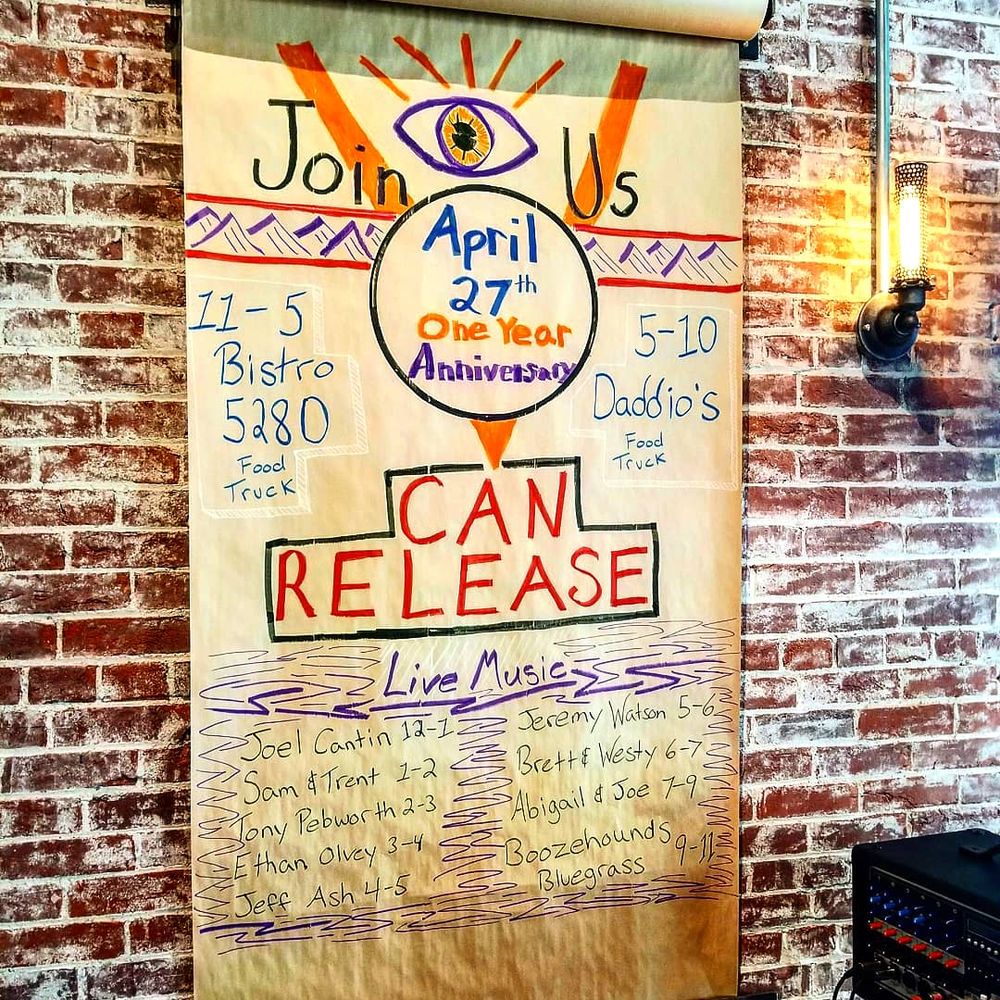 Join Us
April
27th
One Year
Anniversary
11-5
Bistro
5280
Food
Truck
5-10
Daddio's
Food
Truck
CAN
RELEASE
Live Music
Joel Cantin 12-1
Sam & Trent 1-2
Tony Pebworth 2-3
Ethan Olvey 3-4
Jeff Ash 4-5
Jeremy Watson 5-6
Brett & Westy 6-7
Abigail & Joe 7-9
Boozehounds
Bluegrass 9-11